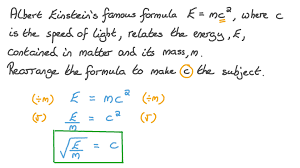 Albert Einstein's famous formula E = mc², where c
is the speed of light, relates the energy, E,
contained in matter and its mass, m.
Rearrange the formula to make c the subject.
(÷m) E = mc² (÷m)
(√) E/m = c² (√)
√(E/m) = c